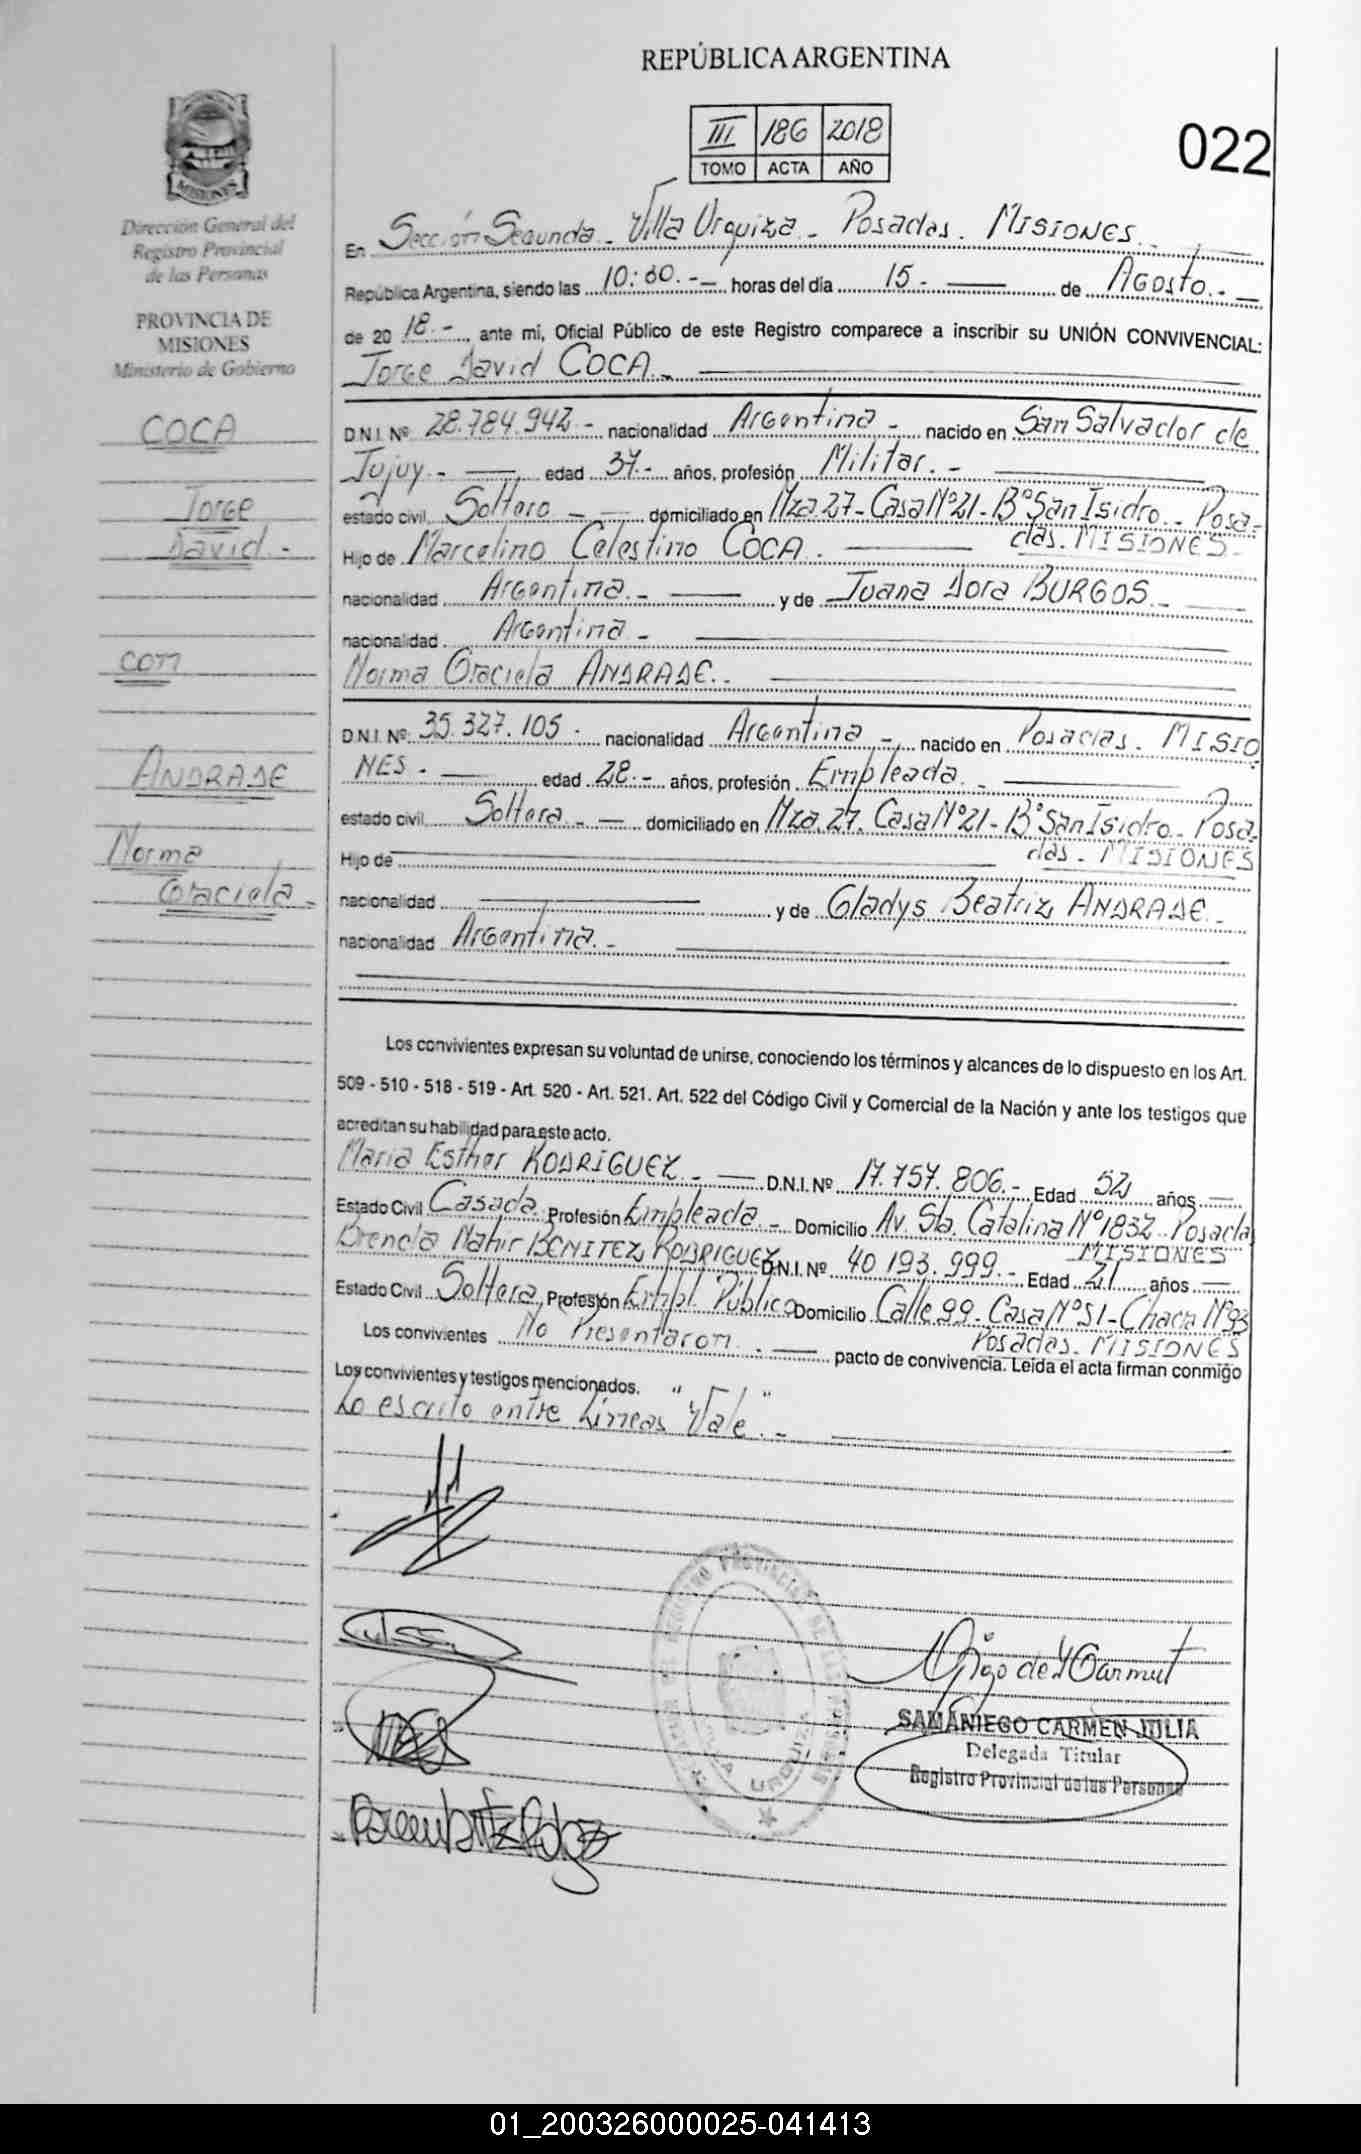 REPÚBLICA ARGENTINA
III 186 2018
TOMO ACTA AÑO
022
MISIONES
Dirección General del
Registro Provincial
de las Personas
PROVINCIA DE
MISIONES
Ministerio de Gobierno
COCA
Jorge
David.-
con
ANDRADE
Norma
Graciela.-
En Sección Segunda.- Villa Urquiza.- Posadas. MISIONES.-
República Argentina, siendo las 10:30.-- horas del día 15.- de Agosto.-
de 2018.-, ante mi, Oficial Público de este Registro comparece a inscribir su UNIÓN CONVIVENCIAL:
Jorge David COCA.-
D.N.I. Nº 28.784.942.- nacionalidad Argentina - nacido en San Salvador de
Jujuy.- edad 37.- años, profesión Militar.-
estado civil Soltero - domiciliado en Mza.27-Casa Nº21-Bº San Isidro.- Posa-
das. MISIONES-
Hijo de Marcelino Celestino COCA.
nacionalidad Argentina.- y de Juana Dora BURGOS.-
nacionalidad Argentina.-
Norma Graciela ANDRADE.-
D.N.I. Nº 35.327.105. nacionalidad Argentina - nacido en Posadas. MISIO
NES.- edad 28.- años, profesión Empleada.-
estado civil Soltera.- domiciliado en Mza.27. Casa Nº21-Bº San Isidro.- Posa-
das. MISIONES
Hijo de
nacionalidad y de Gladys Beatriz ANDRADE.-
nacionalidad Argentina.-
Los convivientes expresan su voluntad de unirse, conociendo los términos y alcances de lo dispuesto en los Art.
509 - 510 - 518 - 519 - Art. 520 - Art. 521. Art. 522 del Código Civil y Comercial de la Nación y ante los testigos que
acreditan su habilidad para este acto.
María Esther RODRIGUEZ.- D.N.I. Nº 17.757.806.- Edad 52 años
Estado Civil Casada. Profesión Empleada.- Domicilio Av. Sta. Catalina Nº1832-Posadas
MISIONES
Brenda Nahir BENITEZ RODRIGUEZ D.N.I. Nº 40 193.999.- Edad 21 años
Estado Civil Soltera, Profesión Empl. Público Domicilio Calle 99-Casa Nº51-Chacra Nº93
Posadas. MISIONES
Los convivientes No Presentaron.- pacto de convivencia. Leída el acta firman conmigo
Los convivientes y testigos mencionados.
Lo escrito entre Líneas "Vale".-
VILLA URQUIZA
SAMANIEGO CARMEN JULIA
Delegada Titular
Registro Provincial de las Personas
01_200326000025-041413